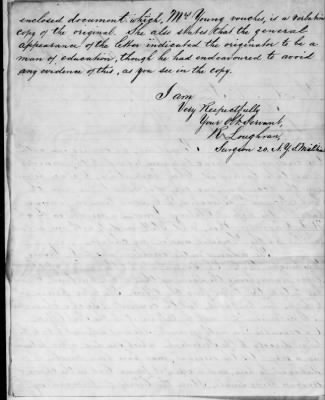 enclosed document which, Mrs Young vouches, is a verbatim
copy of the original. She also states that the general
appearance of the letter indicated the originator to be a
man of education, though he had endeavoured to avoid
any evidence of this, as you see on the copy.
I am
Very Respectfully
Your Obt Servant,
R Loughran,
Surgeon 20. N.Y.S. Militia